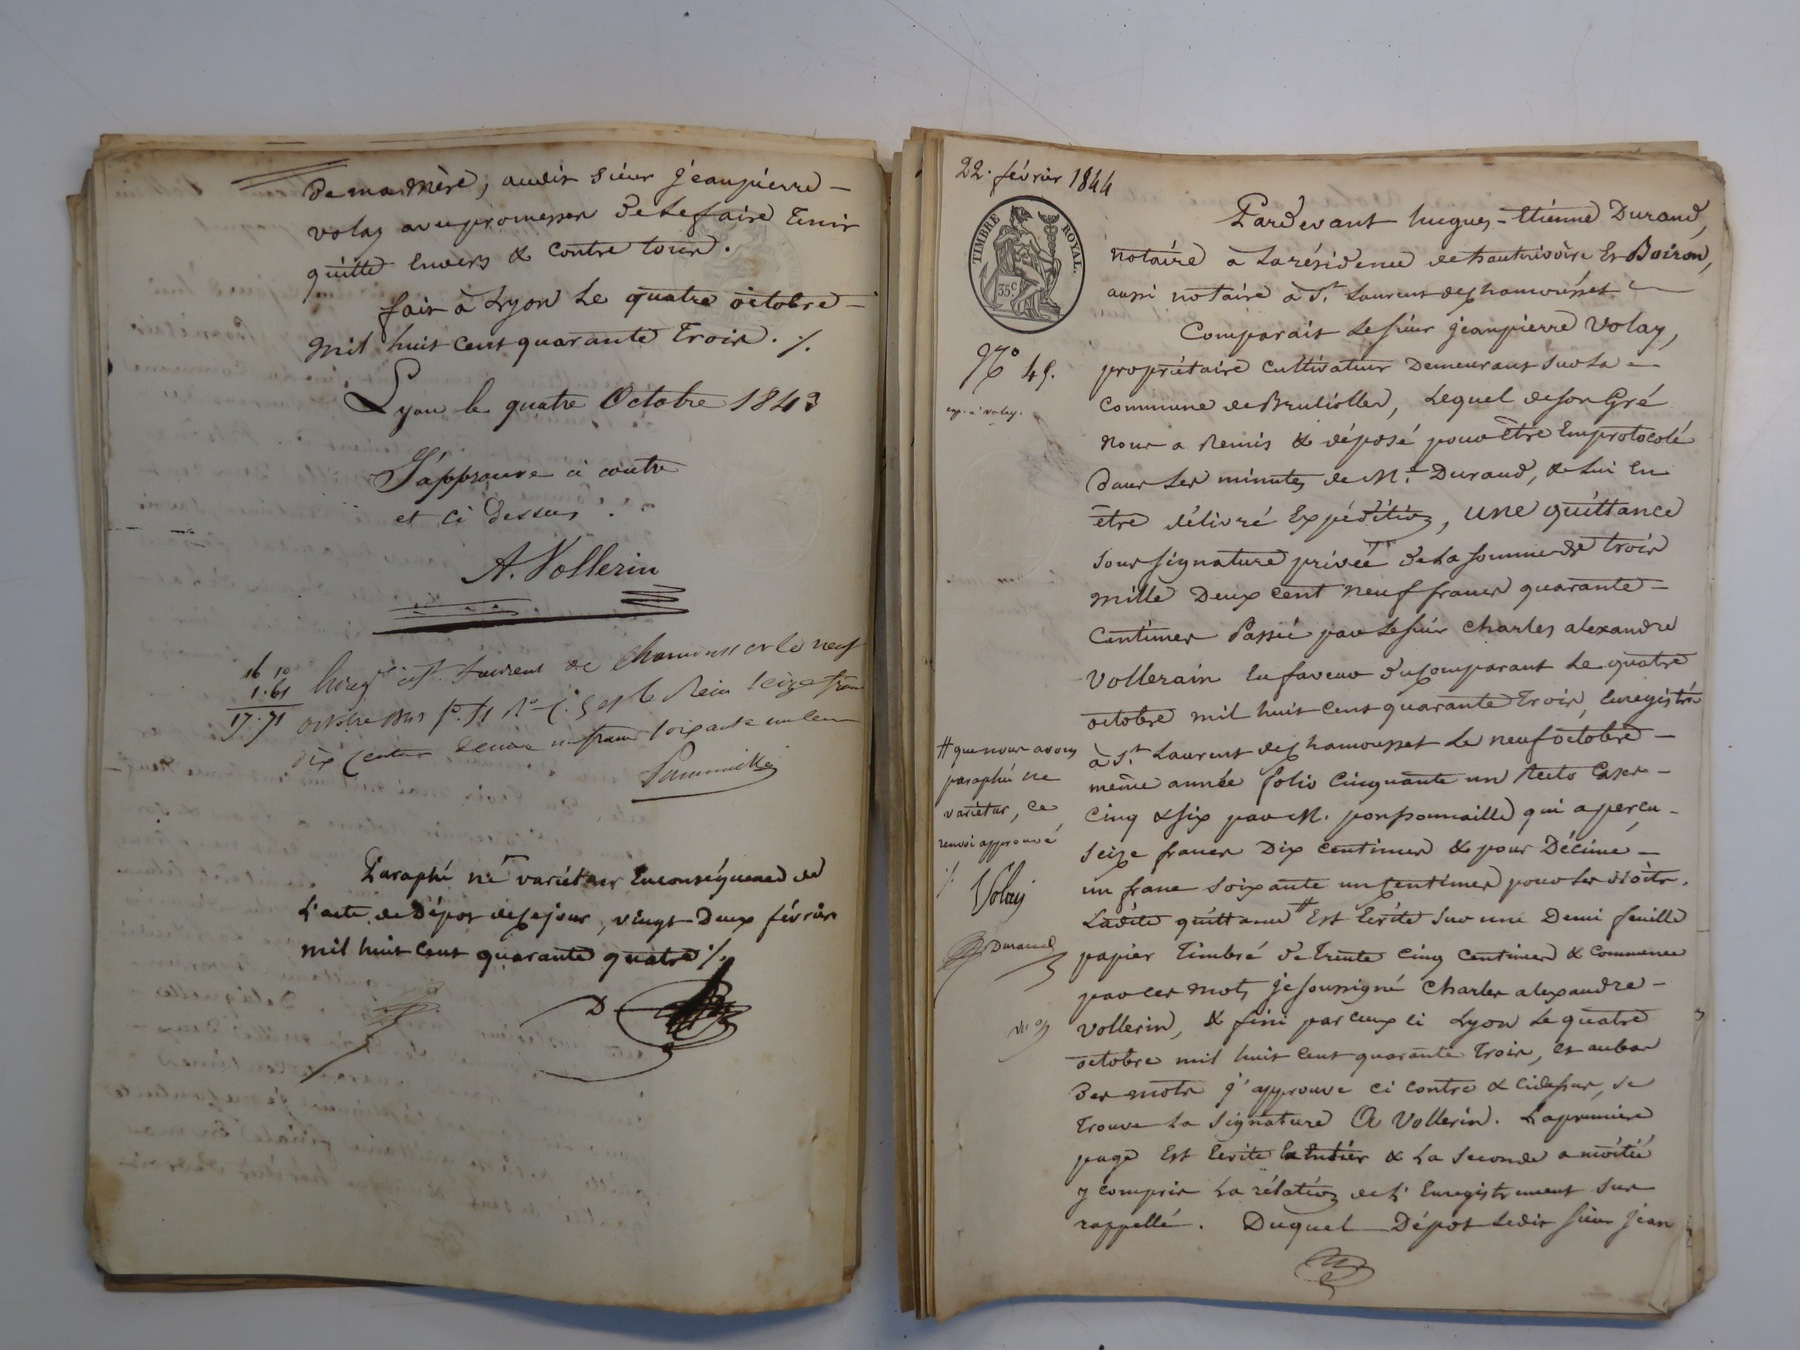 de ma mère, audit sieur jeanpierre
volay avec promesses de le faire tenir
quitte envers & contre tous.
fait à Lyon le quatre octobre
mil huit cent quarante trois. ./.
Lyon le quatre Octobre 1843
J'approuve ci contre
et ci dessus.
A. Vollerin
16 10
1.61
17.71
Enreg. à St. Laurent de Chamousset le neuf
octobre 1843 fo. 51 Ro. C. 5 et 6 Reçu seize francs
dix centimes décime un franc soixante un cent
Paraphé né variétur Enconséquence de
L'acte de Dépot de ce jour, vingt-Deux février
mil huit cent quarante quatre ./.
D
22. février 1844
TIMBRE ROYAL.
35c
No 49.
exp. à volay.
Pardevant hugues-Etiénne Durand,
notaire à La résidence de hauterivoire Et Boiron,
aussi notaire à St. Laurent de chamousset
Comparait le sieur jeanpierre Volay,
propriétaire cultivateur Demeurant sur La
commune de Brullioles, Lequel de son Gré
nous a Remis & déposé pour être Emprotocolé
dans Les minutes de Me. Durand, & Lui En
être délivré Expédition, une quittance
sous signature privée de La somme de trois
mille Deux cent neuf francs quarante
centimes Passée par Le sieur charles alexandre
Vollerain En faveur du Comparant Le quatre
octobre mil huit cent quarante trois, Enregistrée
à St. Laurent de chamousset Le neuf octobre
même année folio cinquante un Recto Cases
cinq & six par M. ponssonnaille qui a perçu
seize francs Dix centimes & pour Décime
un franc soixante un Centimes pour Les droits.
Ladite quittance # Est Ecrite sur une Demi feuille
papier Timbré de Trente cinq centimes & commence
par ces mots, je soussigné charles alexandre
vollerin, & fini par ceux ci Lyon Le quatre
octobre mil huit cent quarante trois, Et au bas
Des mots j'approuve ci contre & ci dessus, se
trouve La signature A Vollerin. La premiere
page Est Ecrite En Entier & La seconde a moitié
y compris La rélation de L'Enregistrement sus
rappellé. Duquel Dépot Ledit sieur jean
# que nous avons
paraphé ne
variétur, ce
renvoi approuvé
./. Volay
Durand